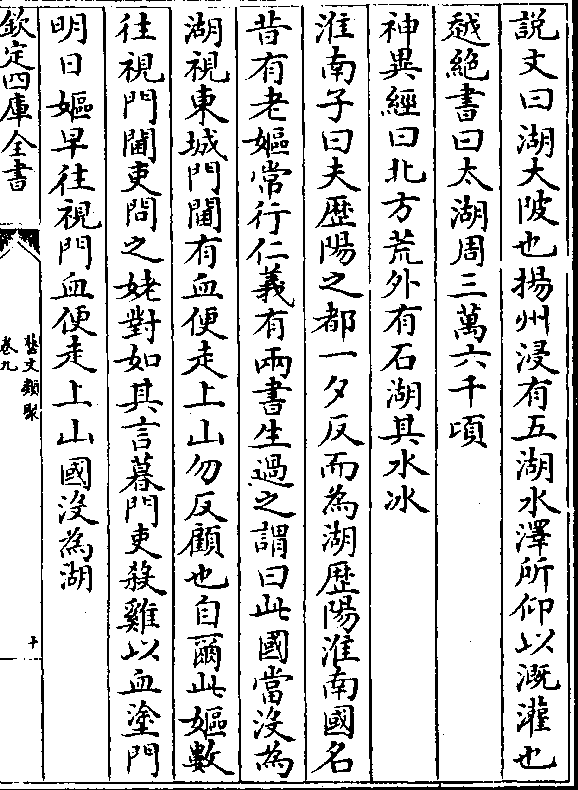 說文曰湖大陂也揚州浸有五湖水澤所仰以溉灌也
越絶書曰太湖周三萬六千頃
神異經曰北方荒外有石湖其水冰
淮南子曰夫歴陽之都一夕反而為湖歴陽淮南國名
昔有老嫗常行仁義有兩書生過之謂曰此國當没為
湖視東城門閫有血便走上山勿反顧也自爾此嫗數
往視門閫吏問之姥對如其言暮門吏殺雞以血塗門
明日嫗早往視門血便走上山國没為湖
欽定四庫全書
藝文類聚
卷九
十